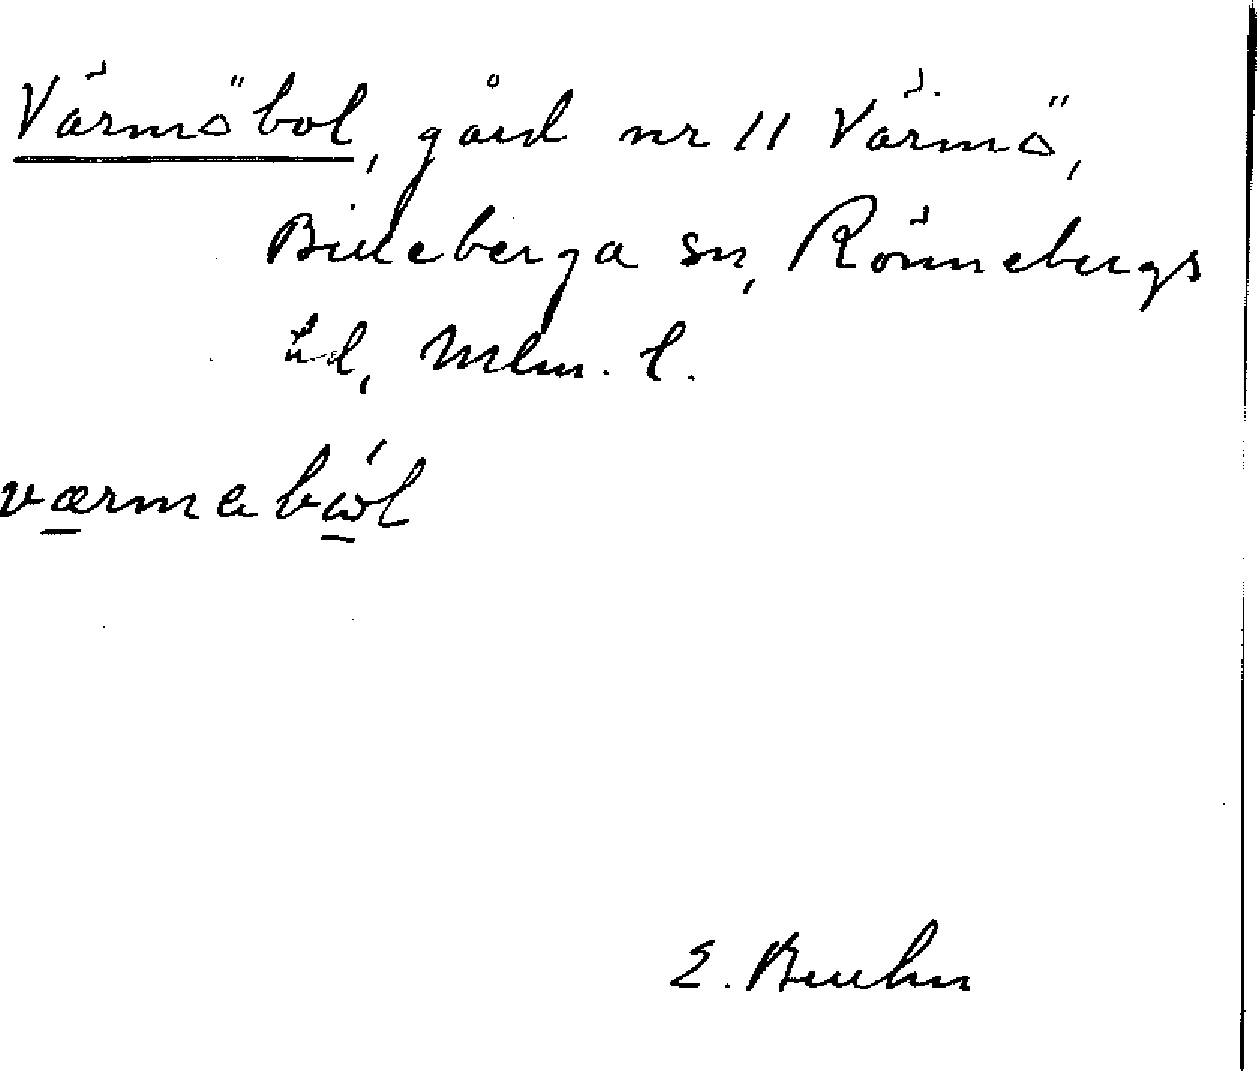 Värmöbol, gård nr 11 Värmö,
Billeberga sn, Rönnebergs
hd, Mlm. l.
værmabål
E. Bruhn